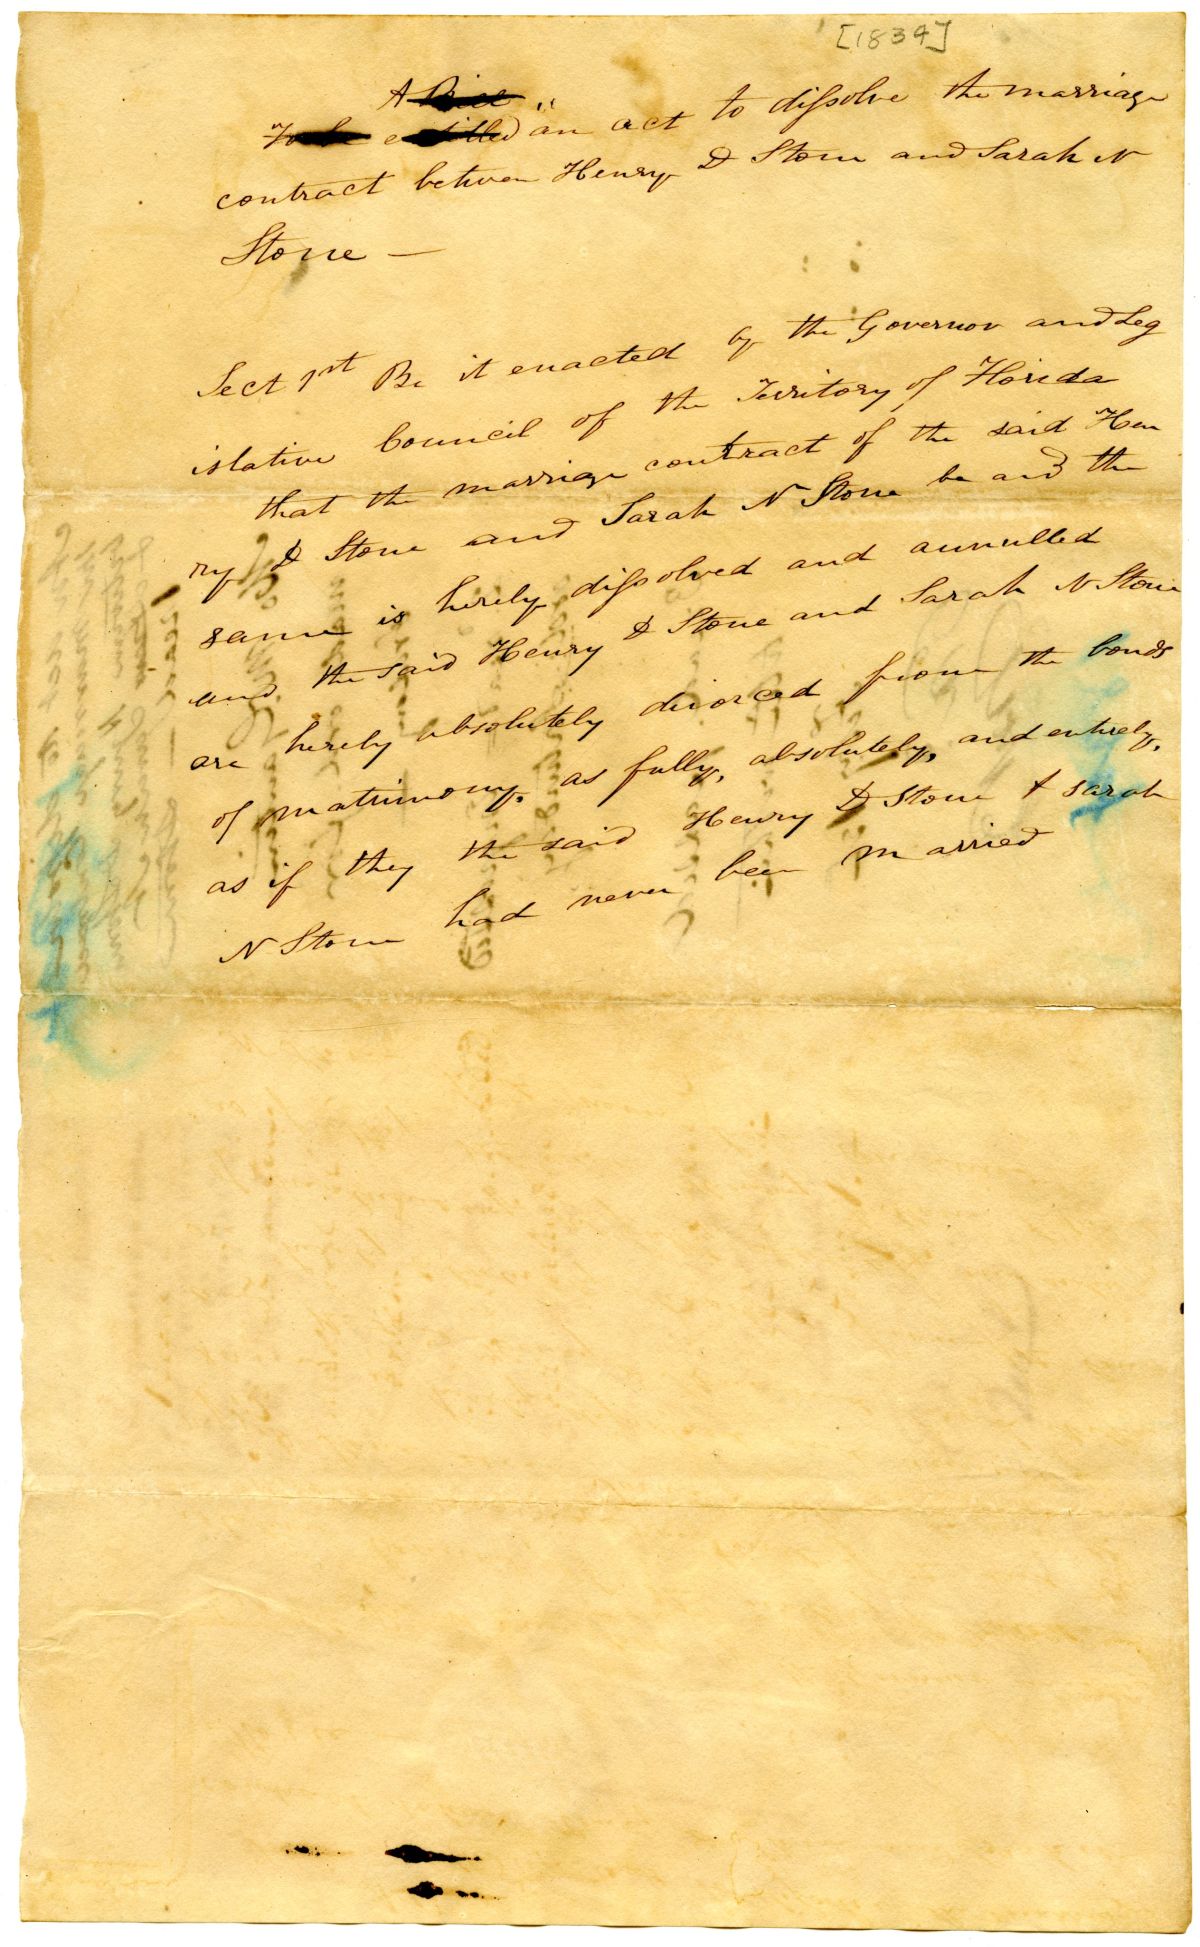 [1834]
A Bill
To be entitled "an act to dissolve the marriage
contract between Henry D Stone and Sarah N
Stone —
Sect 1st Be it enacted by the Governor and Leg
islative Council of the Territory of Florida
that the marriage contract of the said Hen
ry D Stone and Sarah N Stone be and the
same is hereby dissolved and annulled
and the said Henry D Stone and Sarah N Stone
are hereby absolutely divorced from the bonds
of matrimony, as fully, absolutely, and entirely,
as if they the said Henry D Stone & Sarah
N Stone had never been married